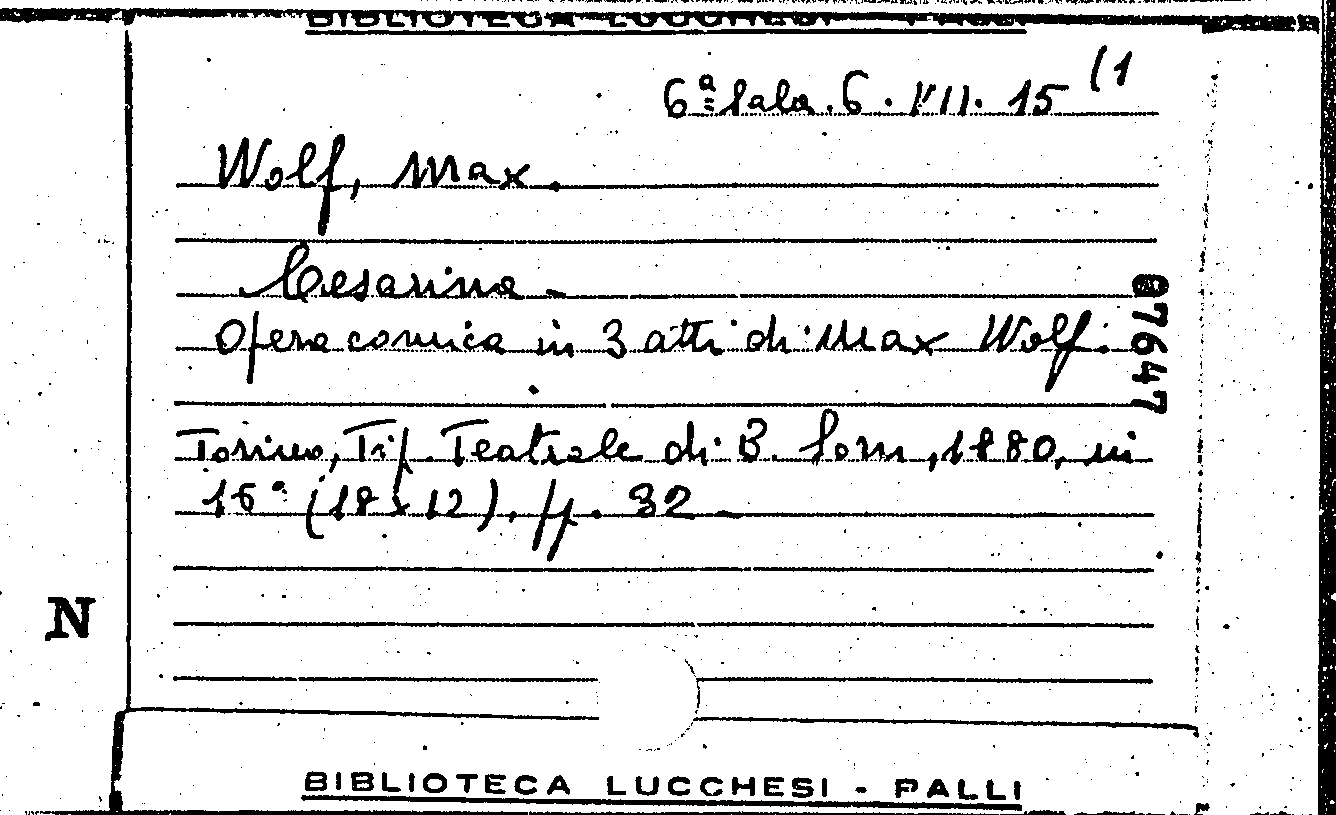 BIBLIOTECA LUCCHESI - PALLI
6ª Sala. 6. VII. 15 (1
Wolf, Max.
Cesarina -
Opera comica in 3 atti di Max Wolf.
Torino, Tip. Teatrale di B. Som, 1880, in
16° (18 x 12), pp. 32 -
07647
N
BIBLIOTECA LUCCHESI - PALLI